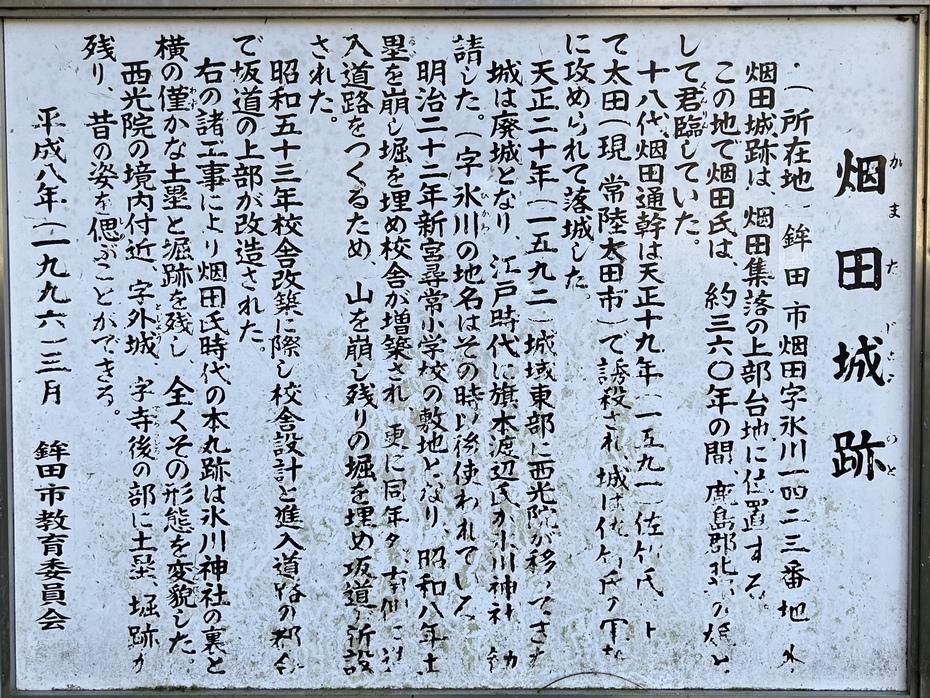 烟田城跡
かまたじょうのと
(所在地 鉾田市烟田字氷川一四二三番地 外
烟田城跡は、烟田集落の上部台地に位置する。
この地で烟田氏は、約三六〇年の間、鹿島郡北の雄と
して君臨していた。
十八代、烟田通幹は天正十九年(一五九一)佐竹氏
て太田(現 常陸太田市)で誘殺され、城は佐竹氏の軍
に攻められて落城した。
天正二十年(一五九二)城域東部に西光院が移ってきた
城は廃城となり、江戸時代に旗本渡辺氏が氷川神社 勧
請した。(字氷川の地名はその時以後使われている
明治二十二年新宮尋常小学校の敷地となり、昭和八年土
塁を崩し堀を埋め校舎が増築され、更に同年
入道路をつくるため、山を崩し残りの堀を埋め坂道 新設
された。
昭和五十三年校舎改築に際し校舎設計と進入道路の都合
で坂道の上部が改造された。
右の諸工事により烟田氏時代の本丸跡は氷川神社の裏と
横の僅かな土塁と堀跡を残し、全くその形態を変貌した。
西光院の境内付近、字外城、字寺後の部に土塁、堀跡が
残り、昔の姿を偲ぶことができる。
平成八年(一九九六)三月 鉾田市教育委員会